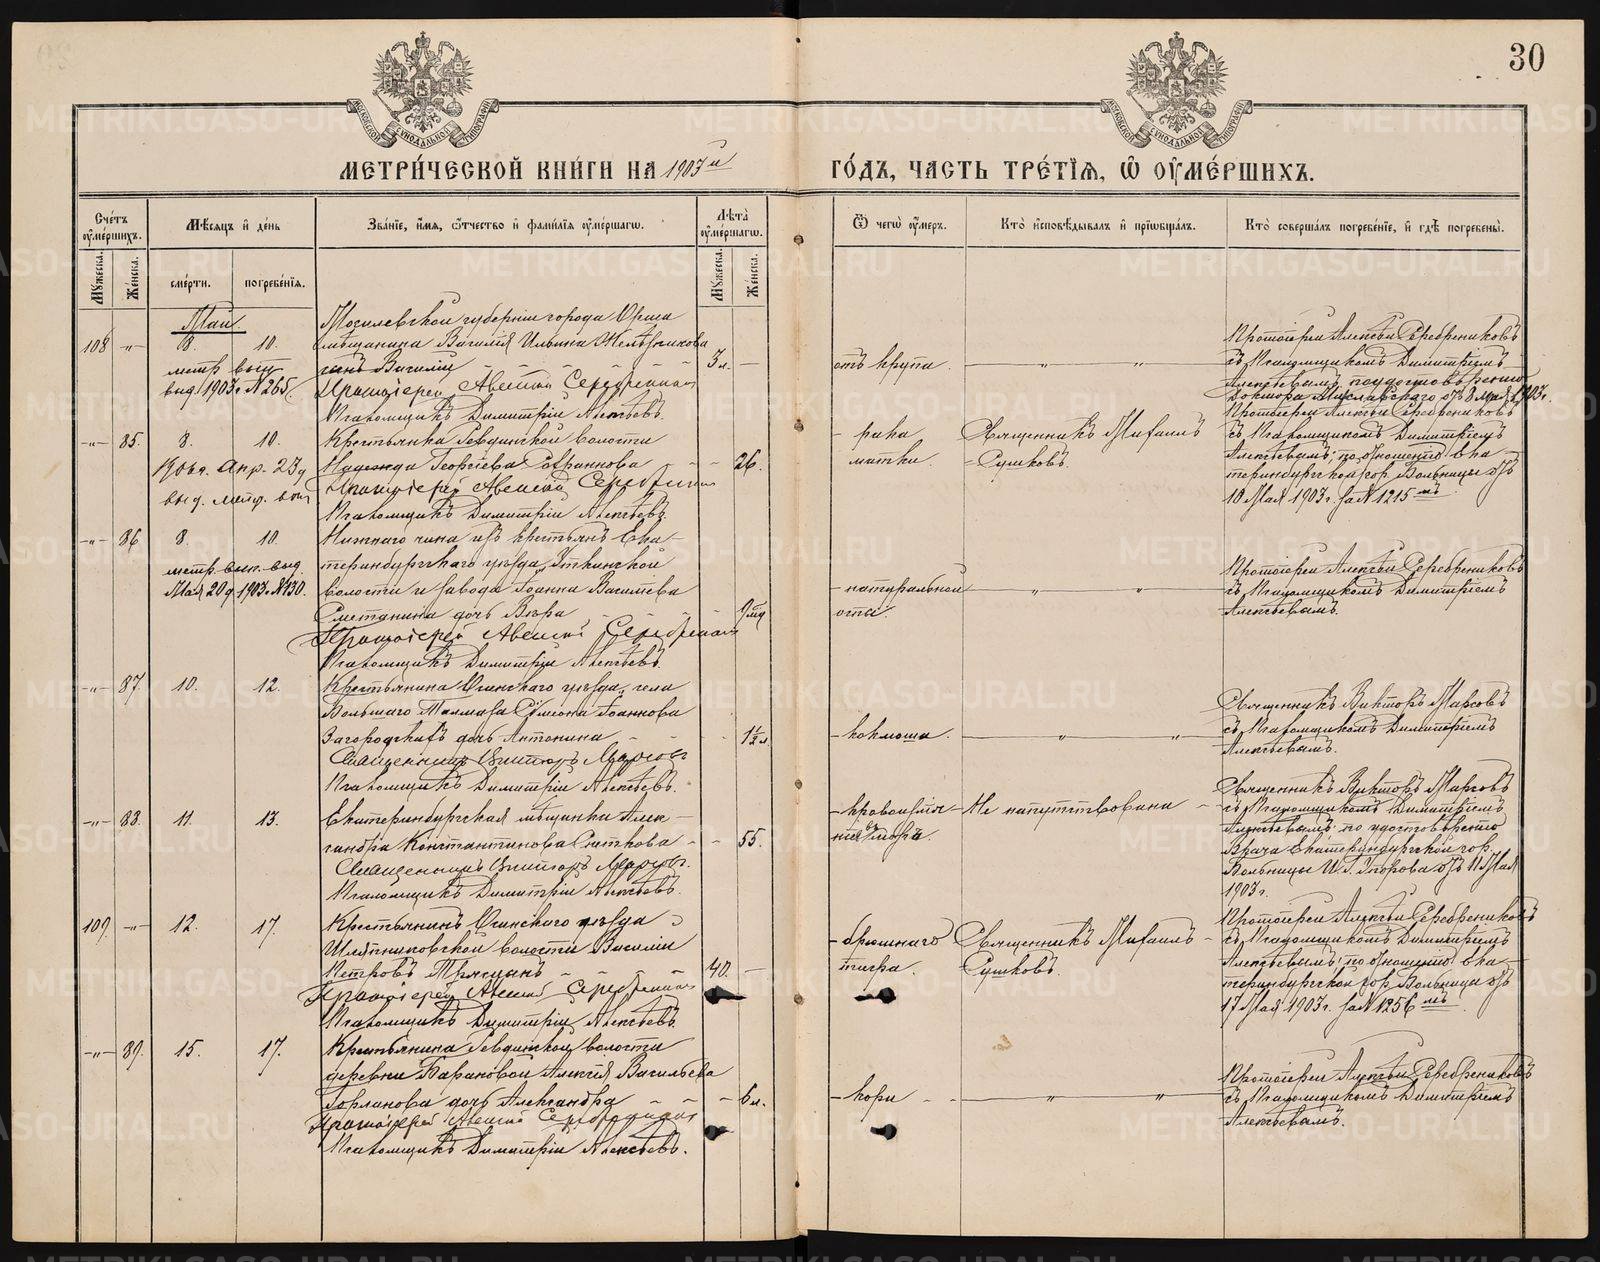 30
МОСКОВСКОЙ СѴНОДАЛЬНОЙ ТИПОГРАФІИ
МОСКОВСКОЙ СѴНОДАЛЬНОЙ ТИПОГРАФІИ
МЕТРИ́ЧЕСКОЙ КНИ́ГИ НА 1903й ГО́ДЪ, ЧАСТЬ ТРЕ́ТЇѦ, Ѽ ОУ҆МЕ́РШИХЪ.
Сче́тъ оу҆ме́ршихъ.
Мꙋ́жеска.
Же́нска.
Мѣ́сѧцъ и҆ де́нь
сме́рти.
погребе́нїѧ.
Зва́нїе, и҆́мѧ, ѻ҆́тчество и҆ фами́лїѧ оу҆ме́ршагѡ.
Лѣ́та оу҆ме́ршагѡ.
Мꙋ́жеска.
Же́нска.
Ѿ чегѡ̀ оу҆́меръ.
Кто̀ и҆сповѣ́дывалъ и҆ прїѡбща́лъ.
Кто̀ соверша́лъ погребе́нїе, и҆ гдѣ̀ погребены̀.
Май
108 -"- 8. 10.
метр. вып.
выд. 1903 г. № 265.
Могилевской губерніи города Орши
мѣщанина Василія Ильина
сынъ Василій
Протоіерей Алексій Серебренниковъ
Псаломщикъ Димитрій Алексѣевъ.
3 л. —
отъ крупа.
— " — " —
Протоіерей Алексѣй Серебрениковъ
съ Псаломщикомъ Димитріемъ
Алексѣевымъ, по удостовѣренію
Доктора Миславскаго отъ 8 мая 1903 г.
-"- 85. 8. 10.
выд. метр. вып.
Крестьянка Ревдинской волости
Надежда Георгіева
Протоіерей Алексій Серебренниковъ
Псаломщикъ Димитрій Алексѣевъ.
- 26.
- рака
матки.
Священникъ Михаилъ
Сушковъ.
Протоіерей Алексѣй Серебрениковъ
съ Псаломщикомъ Димитріемъ
Алексѣевымъ; по отношенію Ека-
теринбургской гор. Больницы отъ
10 Мая 1903 г. за № 1215мъ
-"- 86 8. 10.
метр. вып. выд.
Мая 20 д. 1903 г. № 130.
Нижняго чина изъ крестьянъ Ека-
теринбургскаго уѣзда, Уткинской
волости и завода Іоанна Васильева
Сметанина дочь Вѣра
Протоіерей Алексій Серебренниковъ
Псаломщикъ Димитрій Алексѣевъ.
- натуральной
оспы.
— " — " —
Протоіерей Алексѣй Серебрениковъ
съ Псаломщикомъ Димитріемъ
Алексѣевымъ.
-"- 87. 10. 12.
Крестьянина Осинскаго уѣзда, села
Большаго Талмаза Симеона Іоаннова
Загородскихъ дочь Антонина
Священникъ Викторъ Марсовъ
Псаломщикъ Димитрій Алексѣевъ.
1½ л.
- коклюша.
— " — " —
Священникъ Викторъ Марсовъ
съ Псаломщикомъ Димитріемъ
Алексѣевымъ.
-"- 88. 11. 13.
Екатеринбургская мѣщанка Алек-
сандра Константинова
Священникъ Викторъ Марсовъ.
Псаломщикъ Димитрій Алексѣевъ.
- 55.
- кровоизлія-
нія въ мозгъ.
Не напутствована -
Священникъ Викторъ Марсовъ
съ Псаломщикомъ Димитріемъ
Алексѣевымъ; по удостовѣренію
Врача Екатеринбургской гор.
Больницы И. С. отъ 11 Мая
1903 г.
109. -"- 12. 17.
Крестьянинъ Осинскаго уѣзда
волости Василій
Петровъ
Протоіерей Алексій Серебренниковъ
Псаломщикъ Димитрій Алексѣевъ.
40. —
- брюшнаго
тифа.
Священникъ Михаилъ
Сушковъ.
Протоіерей Алексѣй Серебрениковъ
съ Псаломщикомъ Димитріемъ
Алексѣевымъ; по отношенію Ека-
теринбургской гор. Больницы отъ
17 Мая 1903 г. за № 1256мъ
-"- 89. 15. 17.
Крестьянина Ревдинской волости
деревни Барановой Алексія Васильева
Горланова дочь Александра
Протоіерей Алексій Серебренниковъ
Псаломщикъ Димитрій Алексѣевъ.
- 6 л.
- кори
— " — " —
Протоіерей Алексѣй Серебрениковъ
съ Псаломщикомъ Димитріемъ
Алексѣевымъ.
METRIKI.GASO-URAL.RU